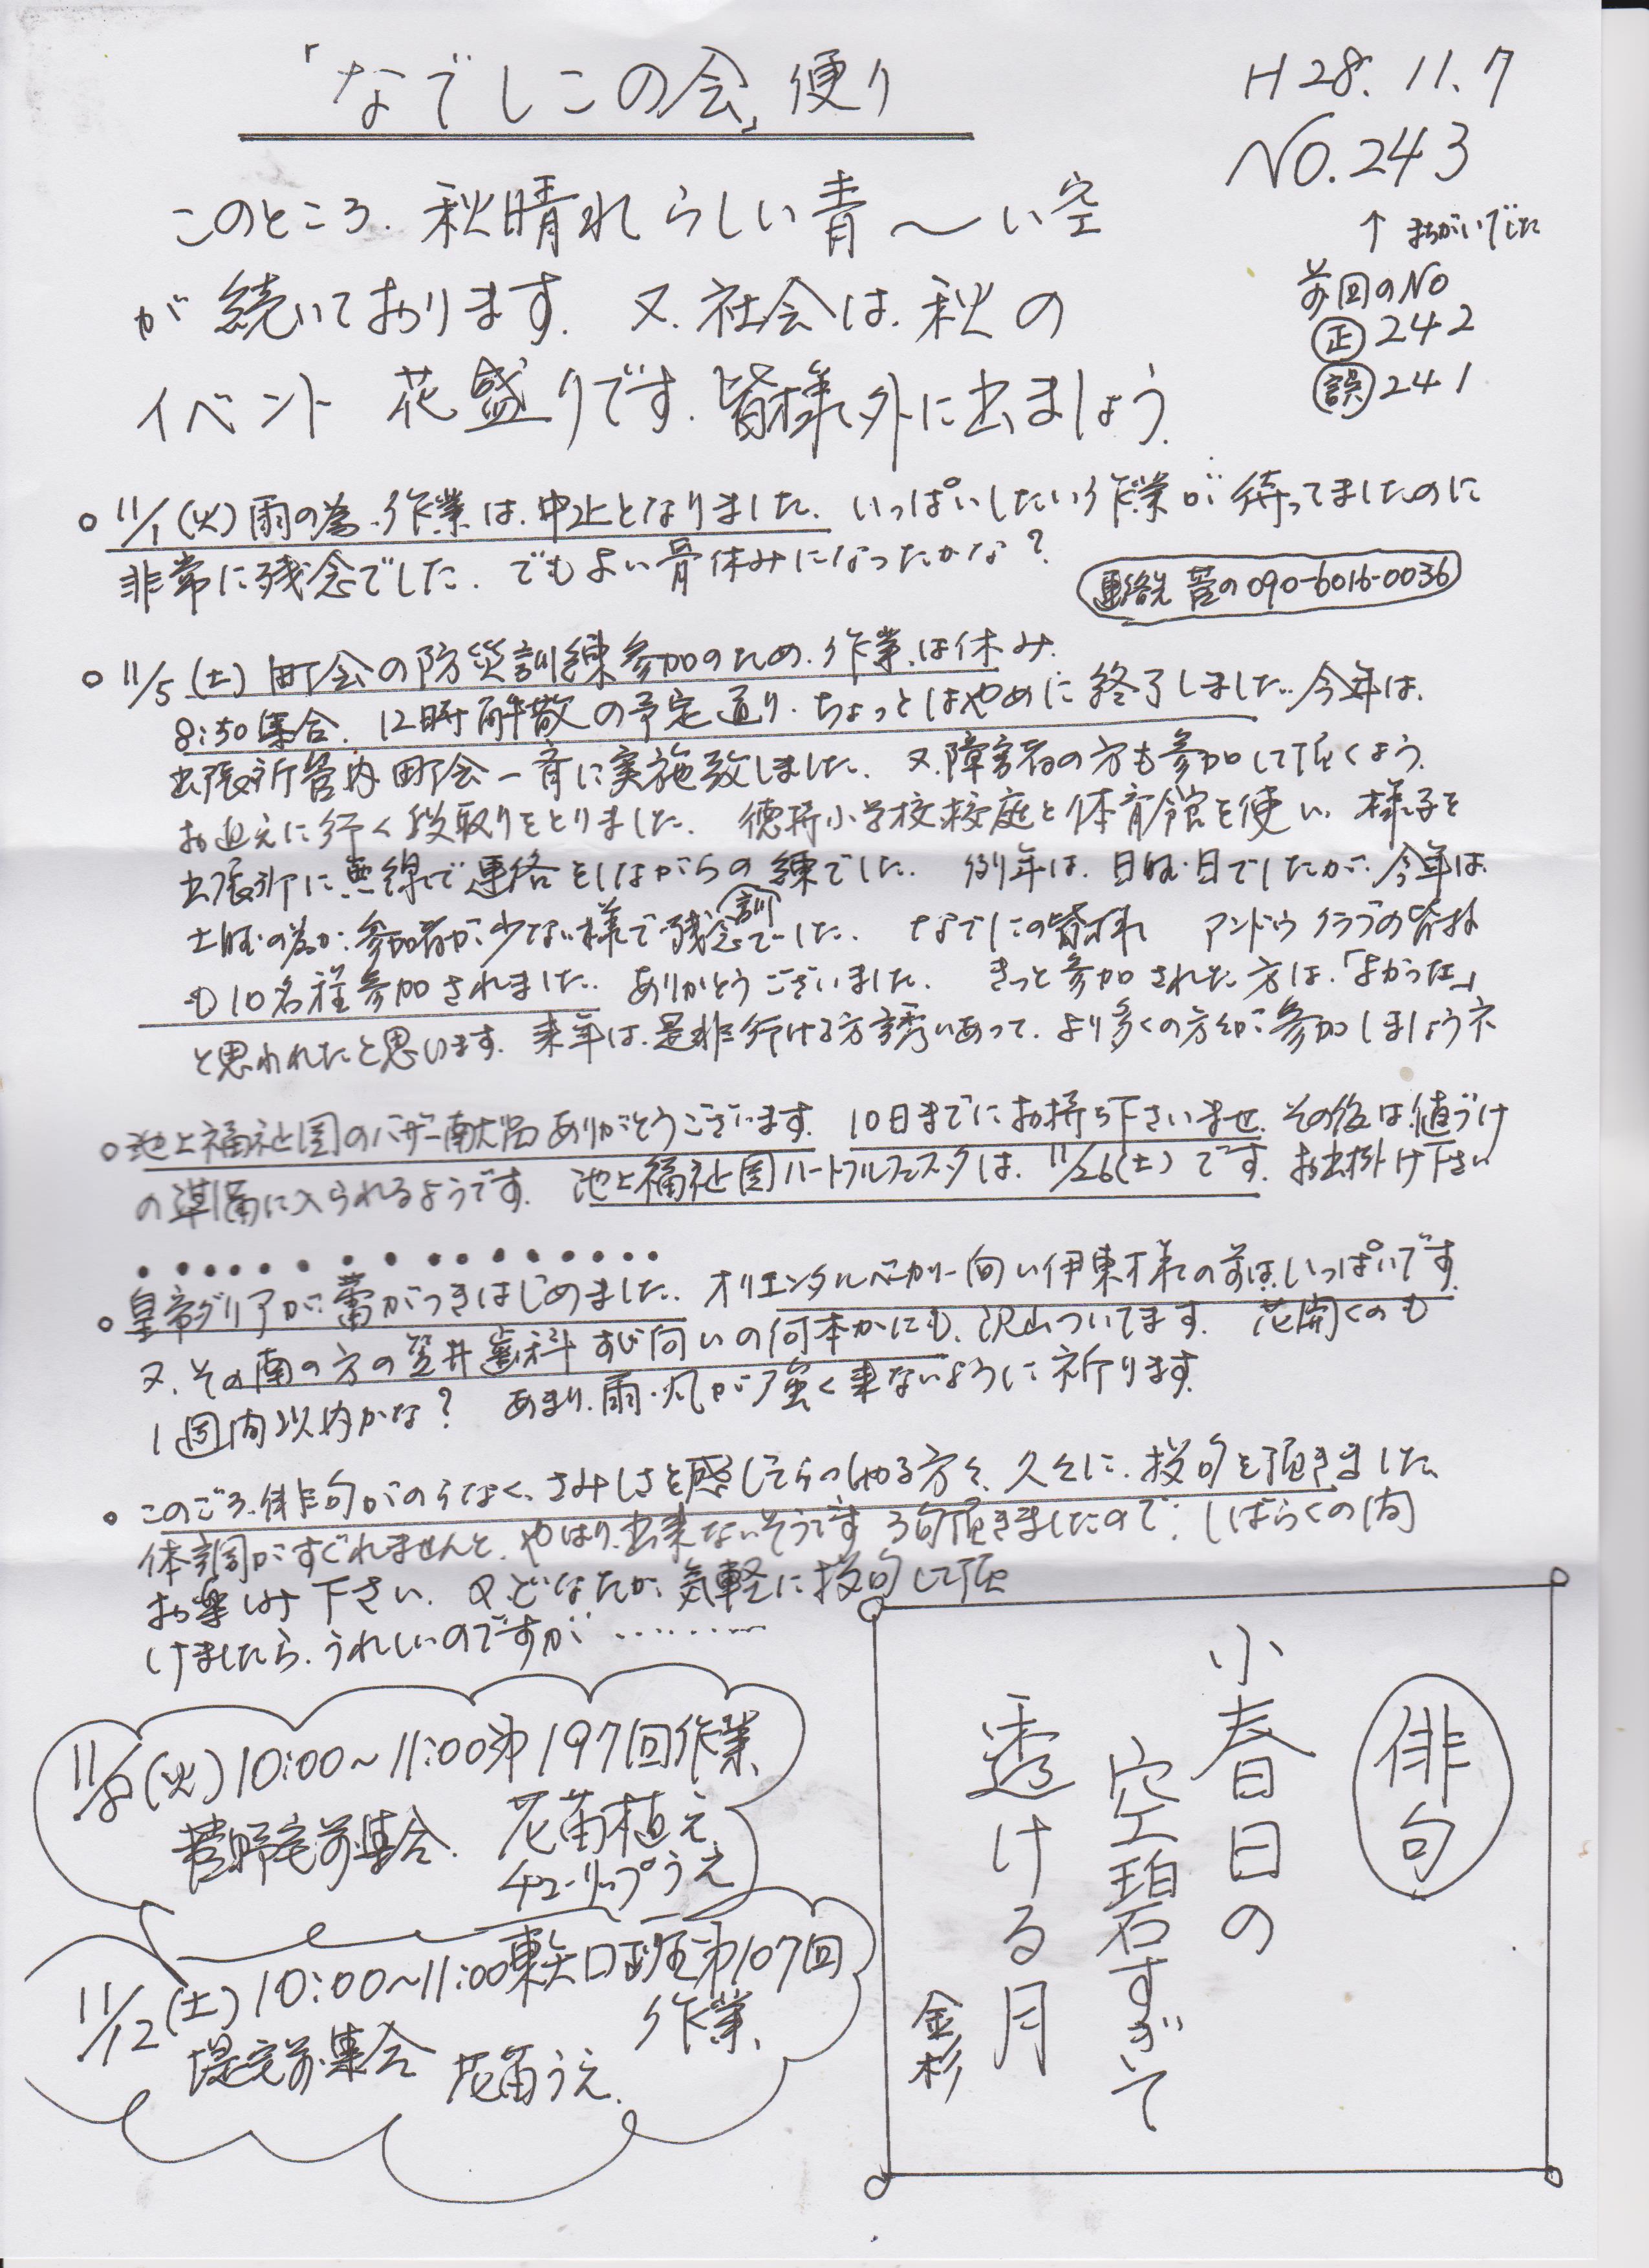 「なでしこの会」便り
H28.11.7
NO.243
↑まちがいでした
前回のNO
正 242
誤 241
このところ、秋晴れらしい青〜い空
が続いております。又、社会は、秋の
イベント 花盛りです。皆様外に出ましょう。
○11/1(火)雨の為、作業は、中止となりました。いっぱいしたい作業が待ってましたのに
非常に残念でした。でもよい骨休みになったかな?
連絡先 菅の090-6016-0036
○11/5(土)町会の防災訓練参加のため、作業は休み。
8:50集合、12時解散の予定通り、ちょっとはやめに終了しました。今年は、
出張所管内町会一斉に実施致しました。又、障害者の方も参加して頂くよう、
お迎えに行く段取りをとりました。徳持小学校校庭と体育館を使い、様子を
出張所に無線で連絡をしながらの訓練でした。例年は、日曜日でしたが、今年は、
土曜の為か、参加者が少ない様で残念でした。なでしこの皆様 アンドウクラブの皆様
も10名程参加されました。ありがとうございました。きっと参加された方は、「よかった」
と思われたと思います。来年は、是非行ける方誘いあって、より多くの方が参加しましょうネ
○池上福祉園のバザー献品ありがとうございます。10日までにお持ち下さいませ。その後は、値づけ
の準備に入られるようです。池上福祉園ハートフルフェスタは、11/26(土)です。お出掛け下さい
○皇帝ダリアが蕾がつきはじめました。オリエンタルベーカリー向い伊東様の前は、いっぱいです。
又、その南の方の笠井歯科すじ向いの何本かにも、沢山ついてます。花開くのも
1週間以内かな? あまり、雨・風が強く来ないように祈ります。
○このごろ、俳句がのらなく、さみしさを感じてらっしゃる方々、久々に、投句を頂きました。
体調がすぐれませんと、やはり出来ないそうです。3句頂きましたので、しばらくの間
お楽しみ下さい。又、どなたか、気軽に投句して頂
けましたら、うれしいのですが………
11/8(火)10:00~11:00第197回作業
菅野宅前集合、花苗植え、
チューリップうえ
11/12(土)10:00~11:00東矢口班第107回
作業、
堤宅前集合 花苗うえ。
俳句
小春日の
空碧すぎて
透ける月
金杉